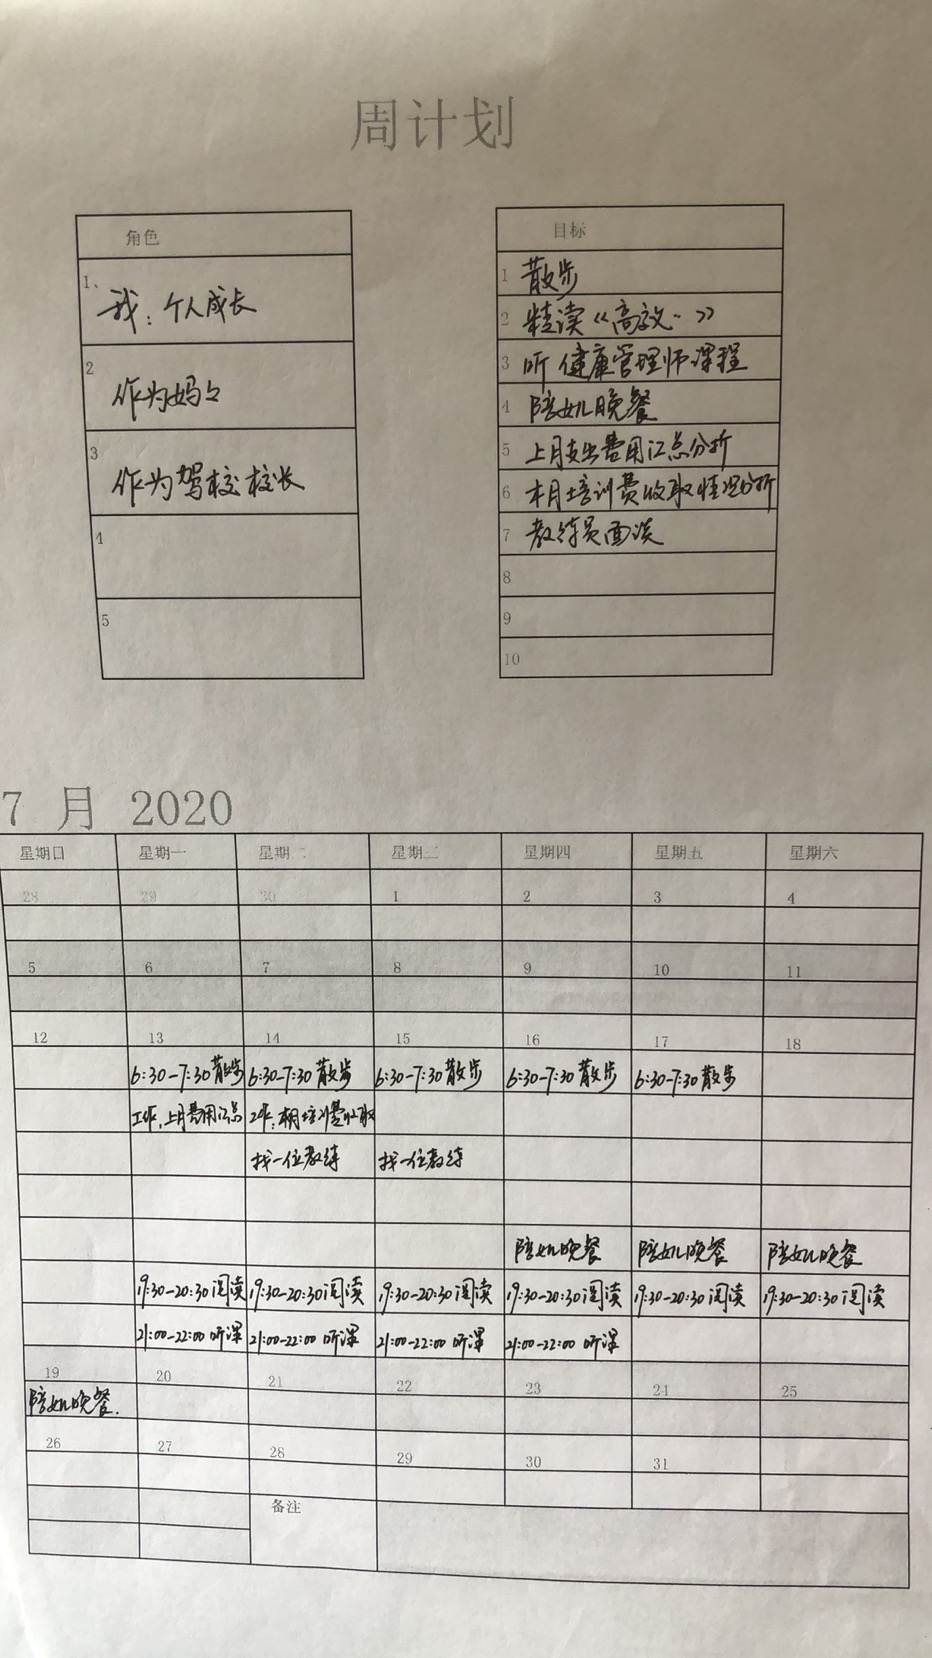 周计划
角色
1、 我：个人成长
2 作为妈々
3 作为驾校校长
4
5
目标
1 散步
2 精读《高效…》
3 听健康管理师课程
4 陪女儿晚餐
5 上月支出费用汇总分析
6 本月培训费收取情况分析
7 教练员面谈
8
9
10
7 月 2020
星期日 星期一 星期二 星期三 星期四 星期五 星期六
28 29 30 1 2 3 4
5 6 7 8 9 10 11
12 13 14 15 16 17 18
6:30-7:30散步 6:30-7:30散步 6:30-7:30散步 6:30-7:30散步 6:30-7:30散步
工作：上月费用汇总 工作：本月培训费收取
找一位教练 找一位教练
陪女儿晚餐 陪女儿晚餐 陪女儿晚餐
19:30-20:30阅读 19:30-20:30阅读 19:30-20:30阅读 19:30-20:30阅读 19:30-20:30阅读 19:30-20:30阅读
21:00-22:00听课 21:00-22:00听课 21:00-22:00听课 21:00-22:00听课
19 20 21 22 23 24 25
陪女儿晚餐.
26 27 28 29 30 31
备注